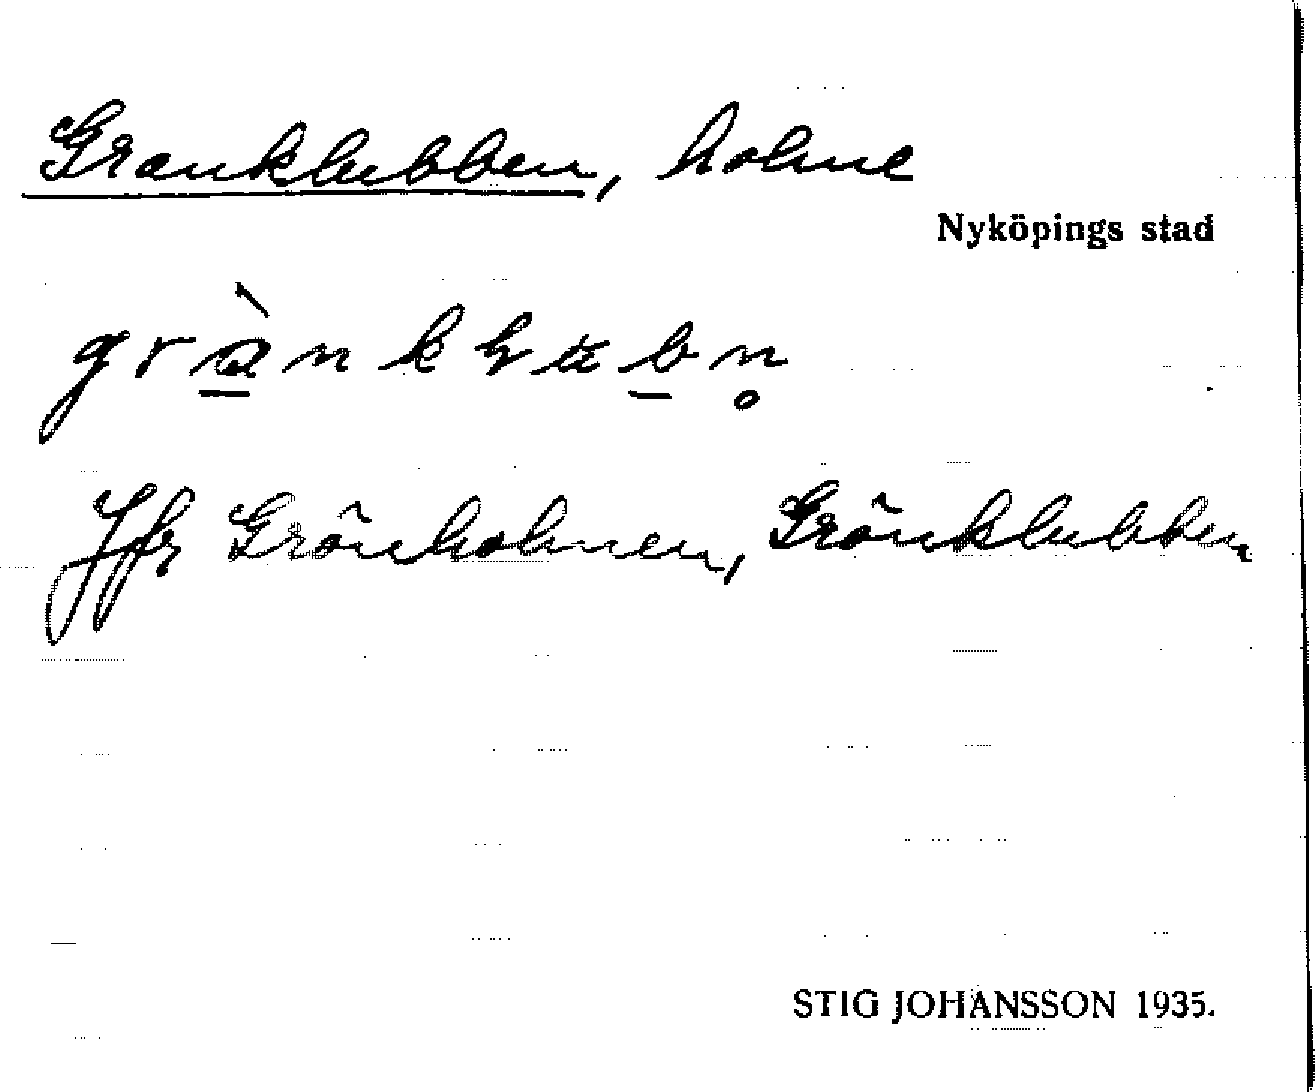 Granklubben, holme
Nyköpings stad
Jfr Grönholmen, Grönklubben
STIG JOHANSSON 1935.